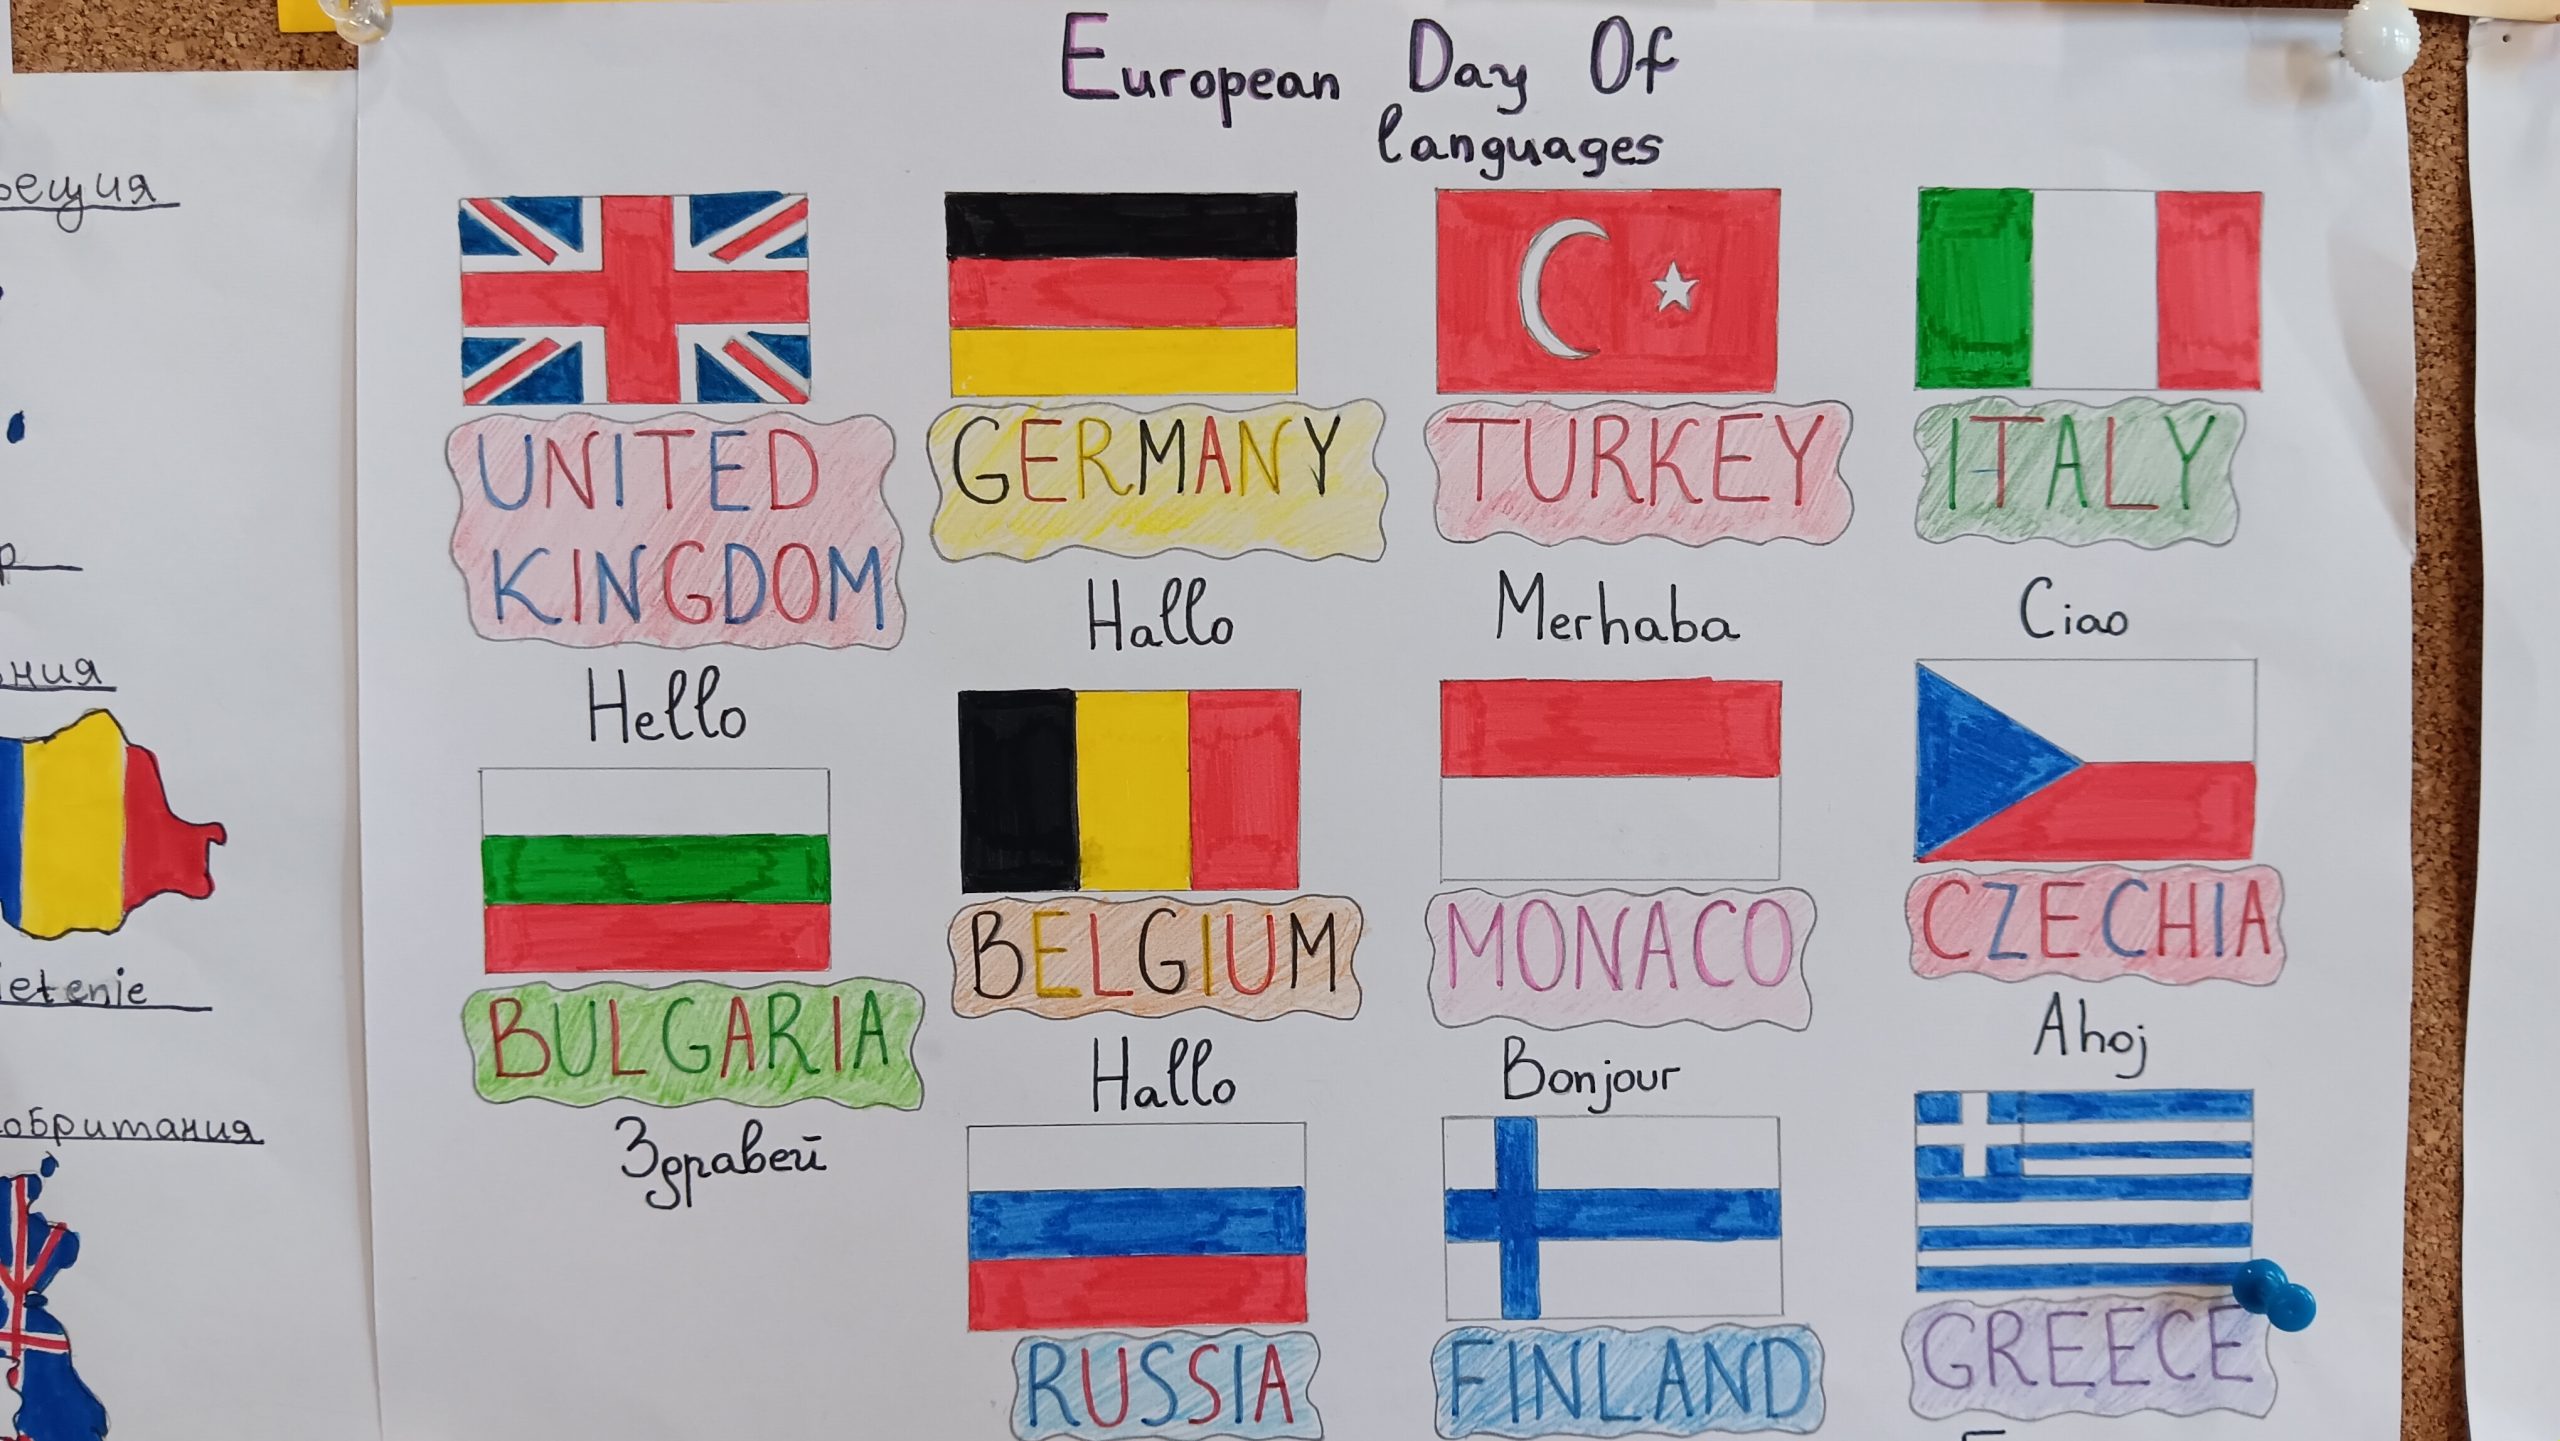 European Day Of
languages
UNITED
KINGDOM
Hello
GERMANY
Hallo
TURKEY
Merhaba
ITALY
Ciao
BULGARIA
Здравей
BELGIUM
Hallo
MONACO
Bonjour
CZECHIA
Ahoj
RUSSIA
FINLAND
GREECE